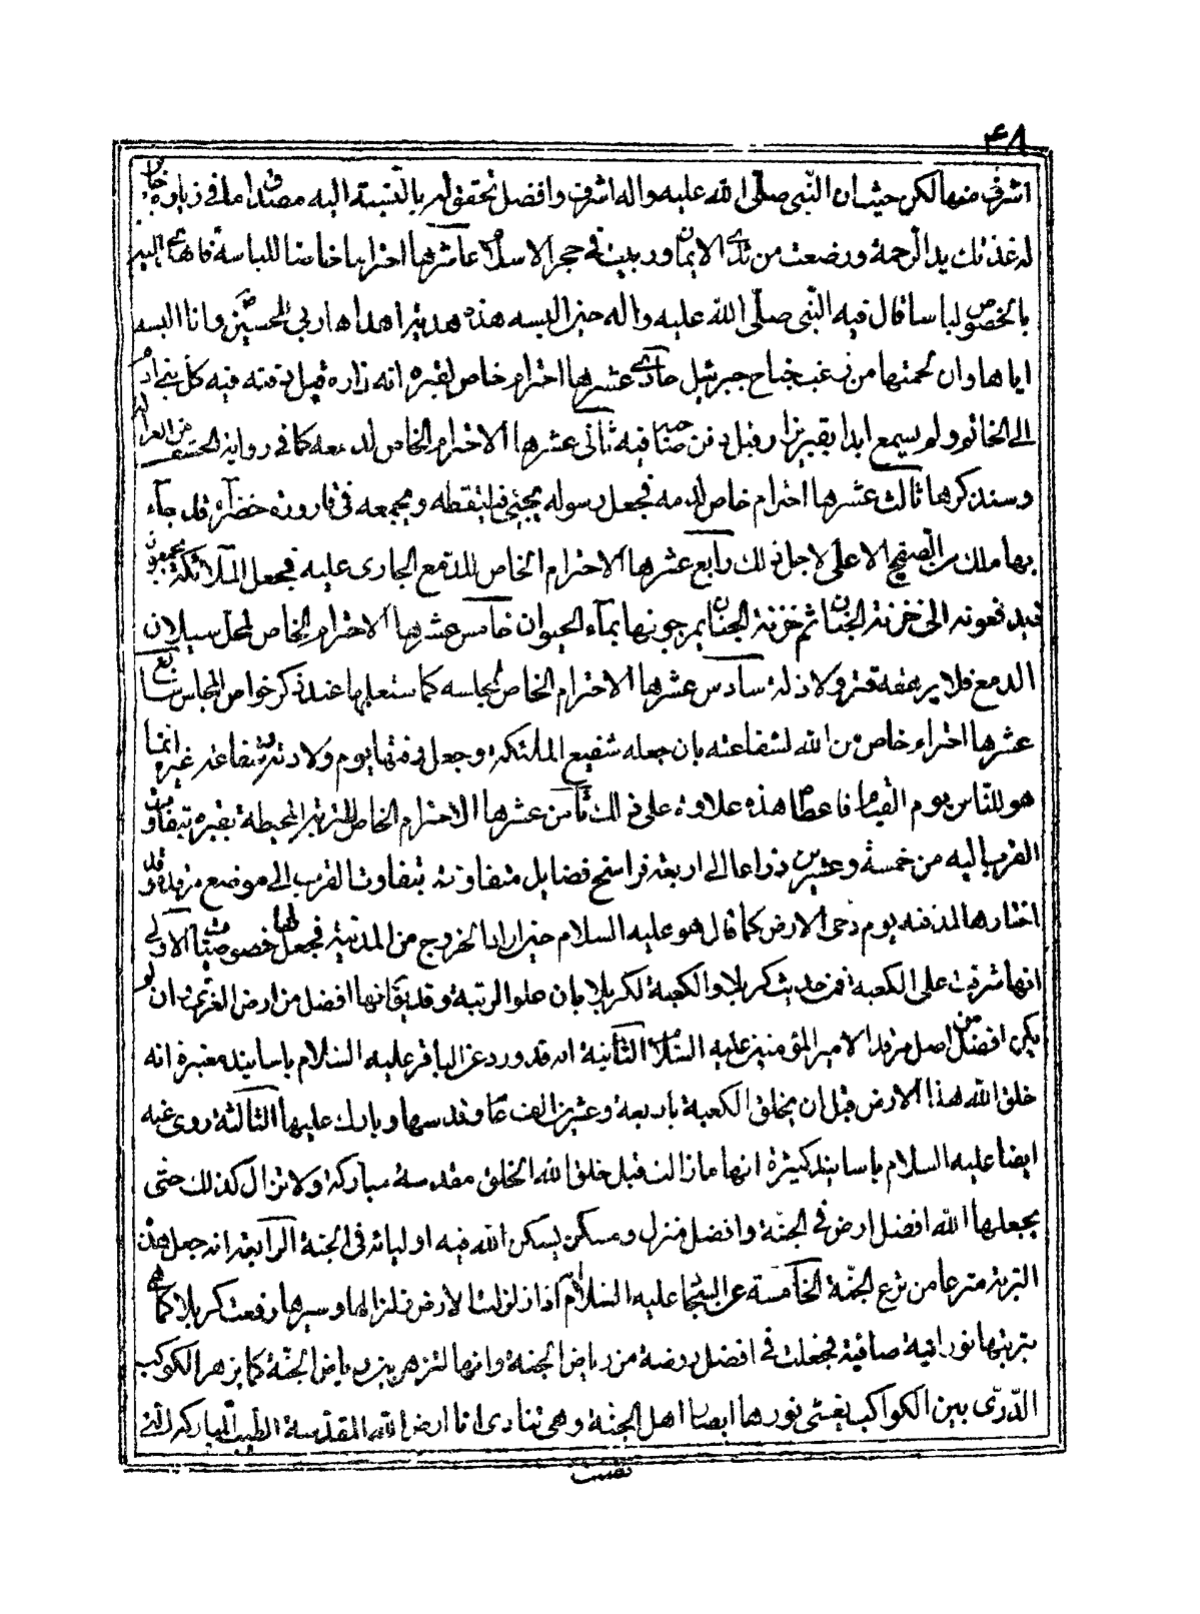 ۴۸
اشرف منها لكن حيث ان النّبى صلّى الله عليه واله اشرف وافضل تحقق لهم بالنسبة اليه مصداق املى فى زيارة خاصة
له غذتك يد الرّحمة ورضعت من ثدى الايمان وربيت فى حجر الاسلام عاشرها احتراما خاصا للباسه فاهدى اليه
بالخصوص لباسا قال فيه النّبى صلّى الله عليه واله حين البسه هذه هدية اهداها ربى للحسين وانا البسه
اياها وان لحمتها من زغب جناح جبرئيل حادى عشرها احترام خاص لقبره انه زاره قبل دفنه فيه كل نبى ادم
الى الخاتم ولم يسمع ابدا بقبر يزار قبل دفن صاحبه فيه ثانى عشرها الاحترام الخاص لدمعه كما فى رواية
وسنذكرها ثالث عشرها احترام خاص لدمه فجعل رسوله يجئ فيلتقطه ويجمعه فى قارورة خضراء قد جاء
بها ملك من الصفيح الاعلى لاجل ذلك رابع عشرها الاحترام الخاص للدمع الجارى عليه فجعل الملائكة يجمعون
فيدفعونه الى خزنة الجنان ثم خزنة الجنان يمزجونها بماء الحيوان خامس عشرها الاحترام الخاص لمحل سيلان
الدمع فلا يرهقه قتر ولا ذلة سادس عشرها الاحترام الخاص لمجالسه كما ستعلمها عند ذكر خواص المجالس سابع
عشرها احترام خاص من الله لشفاعته بان جعله شفيع الملئكة وجعل وقتها يوم ولادته وشفاعة غيره انما
هو للناس يوم القيامة فاعطاه هذه علاوة على ذلك ثامن عشرها الاحترام الخاص للتربة المحيطة بقبره بتفاوت
القرب اليه من خمسة وعشرين ذراعا الى اربعة فراسخ فضايل متفاوتة بتفاوت القرب الى موضع مرقده وقد
اختارها لمدفنه يوم دحى الارض كما قال هو عليه السلام حين اراد الخروج من المدينة فجعل لها خصوصيات الاولى
انها شرفت على الكعبة فمن حديث كربلا والكعبة لكربلا بان علو الرتبة وقد يق انها افضل من ارض الغرى ان لو
يكن افضل من اصل مرقد الامير المؤمنين عليه السلام الثانية انه قد ورد عن الباقر عليه السلام باسانيد معتبرة انه
خلق الله هذا الارض قبل ان يخلق الكعبة باربعة وعشرين الف عام وقدسها وبارك عليها الثالثة روى عنه
ايضا عليه السلام باسانيد كثيرة انها ما زالت قبل خلق الله الخلق مقدسة مباركة ولا تزال كذلك حتى
يجعلها الله افضل ارض فى الجنّة وافضل منزل ومسكن يسكن الله فيه اوليائه فى الجنة الرابعة انه جعل هذه
التربة مترعا من ترع الجنّة الخامسة عن السجاد عليه السلام اذا زلزلت الارض زلزالها وسيرها رفعت كربلا كما هى
بتربتها نورانية صافية فجعلت فى افضل روضة من رياض الجنة وانها لتزهر بين رياض الجنّة كما يزهر الكوكب
الدّرّى بين الكواكب يغشى نورها ابصار اهل الجنّة وهى تنادى انا ارض الله المقدّسة الطيبة المباركة التى
تضمنت